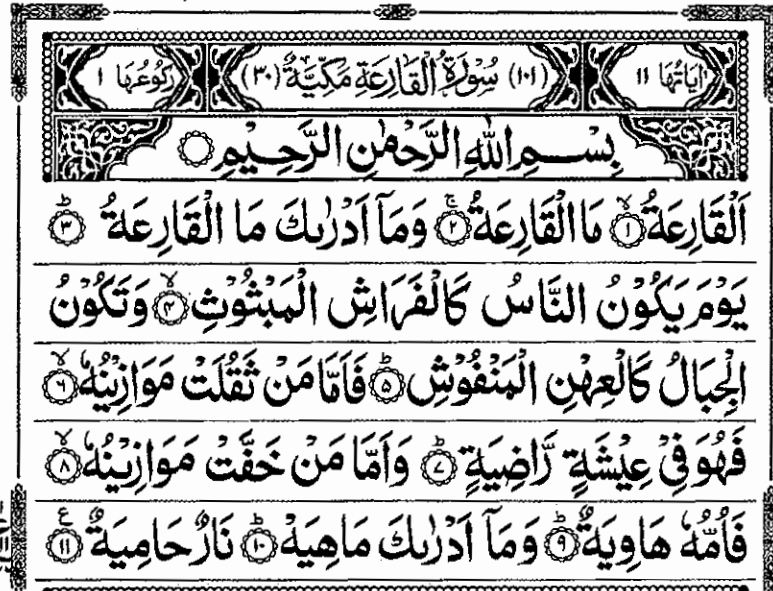 اٰيَاتُهَا ۱۱ (۱۰۱) سُوْرَةُ الْقَارِعَةِ مَكِّيَّةٌ (۳۰) رُكُوْعُهَا ۱
بِسْمِ اللّٰهِ الرَّحْمٰنِ الرَّحِيْمِ
اَلْقَارِعَةُ ۙ﴿۱﴾ مَا الْقَارِعَةُ ۚ﴿۲﴾ وَمَاۤ اَدْرٰىكَ مَا الْقَارِعَةُ ؕ﴿۳﴾
يَوْمَ يَكُوْنُ النَّاسُ كَالْفَرَاشِ الْمَبْثُوْثِ ۙ﴿۴﴾ وَتَكُوْنُ
الْجِبَالُ كَالْعِهْنِ الْمَنْفُوْشِ ؕ﴿۵﴾ فَاَمَّا مَنْ ثَقُلَتْ مَوَازِيْنُهٗ ۙ﴿۶﴾
فَهُوَ فِيْ عِيْشَةٍ رَّاضِيَةٍ ؕ﴿۷﴾ وَاَمَّا مَنْ خَفَّتْ مَوَازِيْنُهٗ ۙ﴿۸﴾
فَاُمُّهٗ هَاوِيَةٌ ؕ﴿۹﴾ وَمَاۤ اَدْرٰىكَ مَاهِيَهْ ؕ﴿۱۰﴾ نَارٌ حَامِيَةٌ ﴿۱۱﴾ ع